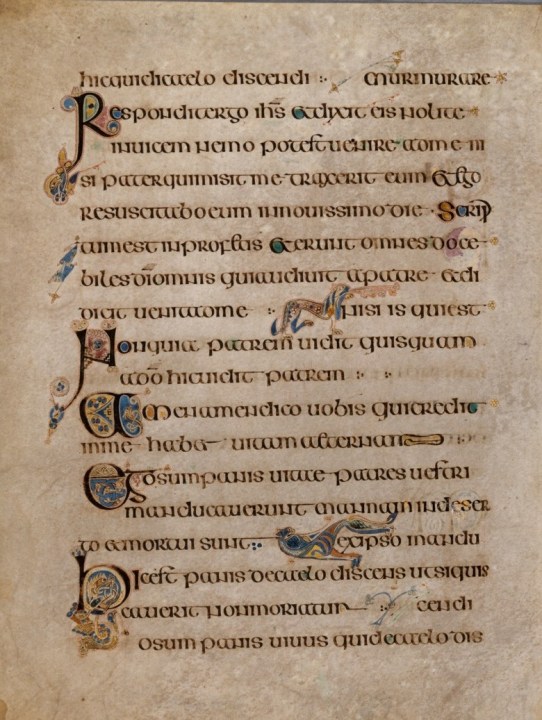 hic quia de caelo discendi murmurare
Respondit ergo ihs et dixit eis nolite
inuicem nemo potest uenire ad me ni
si pater qui misit me traxerit eum et ego
resuscitabo eum in nouissimo die Scrip
tum est in profetis et erunt omnes doce
biles di omnis qui audiuit a patre et di
dicit uenit ad me nisi is qui est
Non quia patrem uidit quisquam
a do hic uidit patrem
Amen amen dico uobis qui credit
in me habet uitam aeternam
Ego sum panis uitae patres uestri
manducauerunt manna in deser
to et mortui sunt ex ipso mandu
Hic est panis de caelo discens ut si quis
cauerit non moriatur cendi
osum panis uiuus qui de caelo dis